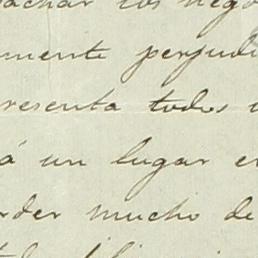 achar los nego
mente perjudi
resenta todos
á un lugar en
rder mucho de